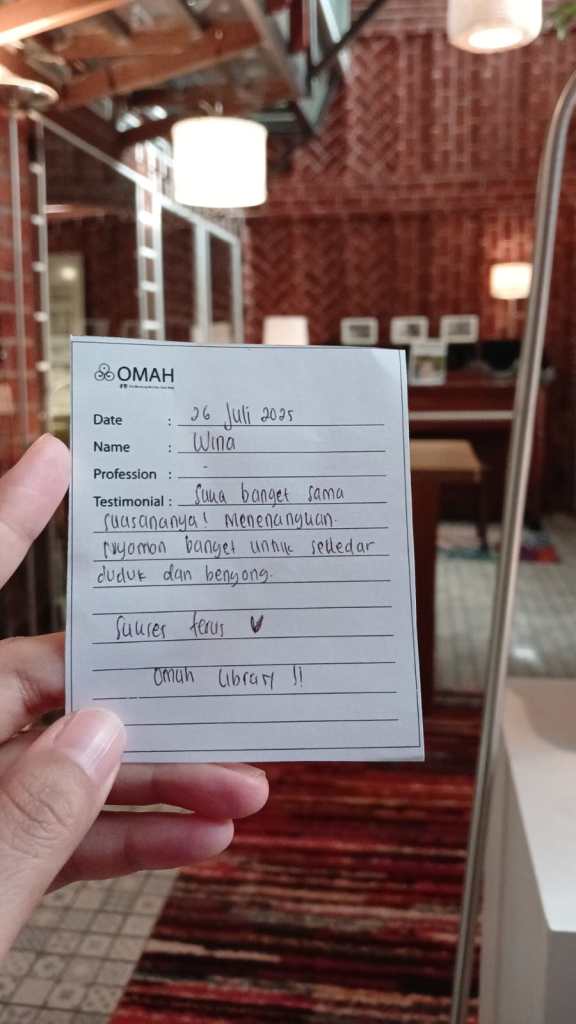 OMAH
Date : 26 Juli 2025
Name : Wina
Profession : -
Testimonial : Suka banget sama
suasananya! Menenangkan.
Nyoman banget untuk sekedar
duduk dan bengong.
Sukses terus ♥
Omah Library !!